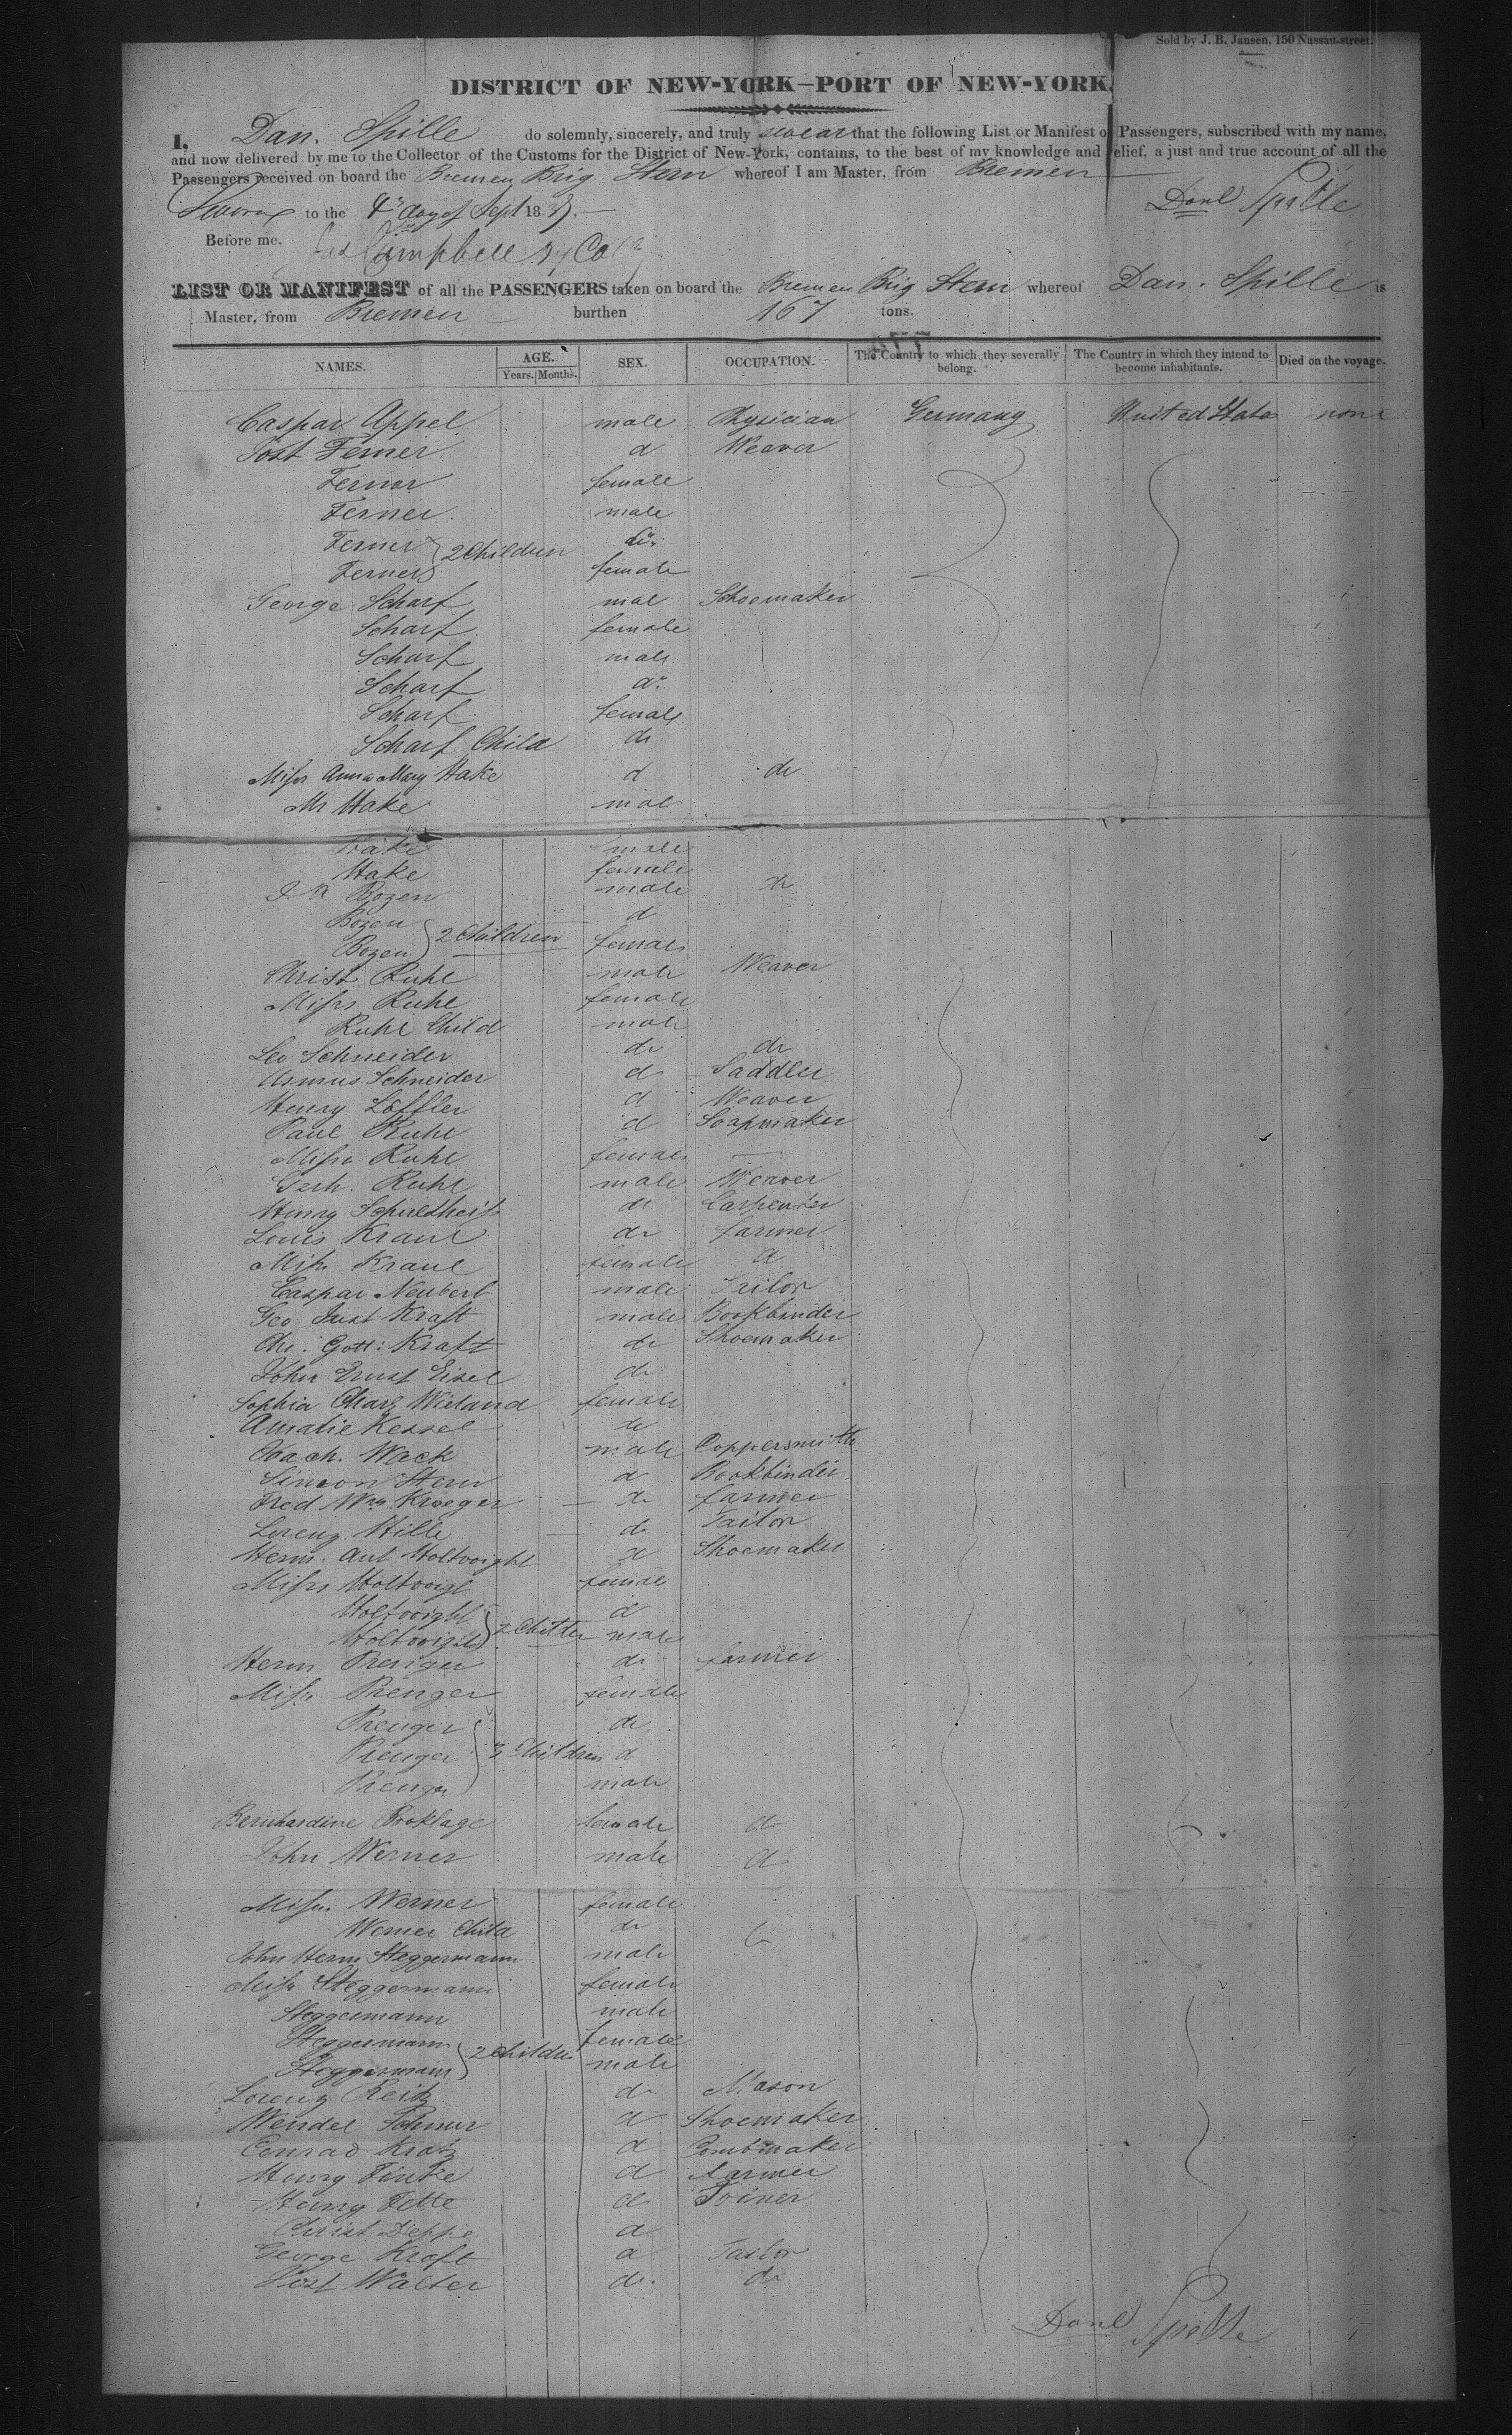 Sold by J. B. Jansen, 150 Nassau-street.
DISTRICT OF NEW-YORK—PORT OF NEW-YORK.
I, Dan. Spille do solemnly, sincerely, and truly swear that the following List or Manifest of Passengers, subscribed with my name,
and now delivered by me to the Collector of the Customs for the District of New-York, contains, to the best of my knowledge and belief, a just and true account of all the
Passengers received on board the Bremen Brig Stern whereof I am Master, from Bremen
Sworn to the 4th day of Sept 183 Danl Spille
Before me. Campbell Dy Col
LIST OR MANIFEST of all the PASSENGERS taken on board the Bremen Brig Stern whereof Dan. Spille is
Master, from Bremen burthen 167 tons.
NAMES. AGE. Years. Months. SEX. OCCUPATION. The Country to which they severally belong. The Country in which they intend to become inhabitants. Died on the voyage.
Caspar Appel male Physician Germany United States none
Jost Ferner d Weaver
Ferner female
Ferner male
Ferner 2 Children do
Ferner female
George Scharf mal Schoemaker
Scharf female
Scharf male
Scharf do
Scharf female
Scharf Child do
Miss Anna Mary Hake d do
Mr Hake male
Hake male
Hake female
Bozen male do
Bozen 2 Children d
Bozen female
Christ Ruhl male Weaver
Missrs Ruhl female
Ruhl Child male
Leo Schneider do do
Asmus Schneider do Saddler
Henry Löffler d Weaver
Paul Ruhl d Soapmaker
Missrs Ruhl female
Gerh. Ruhl male Weaver
Henry Schultheiss do Carpenter
Louis Kraul do farmer
Miss Kraul female d
Caspar Neubert male Tailor
Geo Just Kraft male Bookbinder
Chr. Gott: Kraft do Shoemaker
John Ernst Eisel do
Sophia Charl Wieland female
Amalie Kessel do
Zach. Wack male Coppersmith
Simeon Stern d Bookbinder
Fred Wm Kroeger do farmer
Lorenz Hille do Tailor
Herm. Ant Holtvoight d Shoemaker
Missrs Holtvoigt female
Holtvoight 2 Childre d
Holtvoight male
Herm Prenger do farmer
Missrs Prenger female
Prenger do
Prenger 3 Children d
Prenger male
Bernhardine Broklage female do
John Werner male d
Missrs Werner female
Werner Child do
John Herm Steggermann male
Missrs Steggermann female
Steggermann male
Steggermann 2 Childre female
Steggermann male
Lorenz Reitz do Mason
Wendel d Shoemaker
Conrad Kratz d Combmaker
Henry Finke d farmer
Henry Tette do Joiner
Christ Deppe d
George Kraft d Tailor
Jost Walter do do
Danl Spille